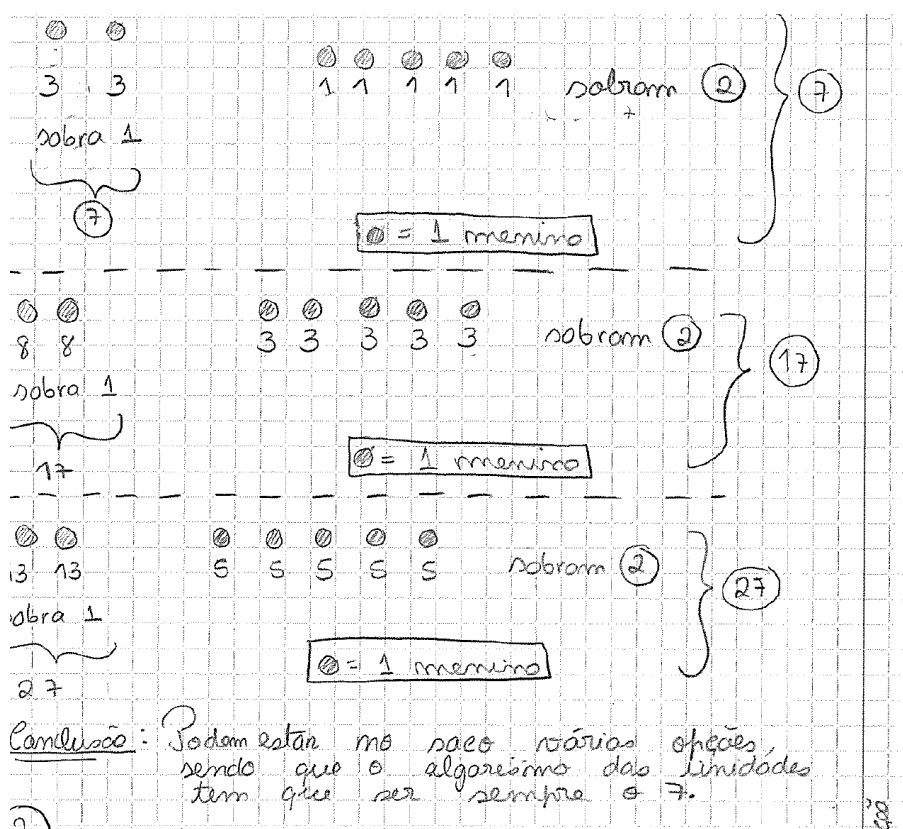 3 3 1 1 1 1 1 sobram 2 7
sobra 1
7
= 1 menino
8 8 3 3 3 3 3 sobram 2 17
sobra 1
= 1 menino
17
13 13 5 5 5 5 5 sobram 2 27
obra 1
= 1 menino
27
Conclusão: Podem estar no saco várias opções,
sendo que o algarismo das unidades
tem que ser sempre o 7.